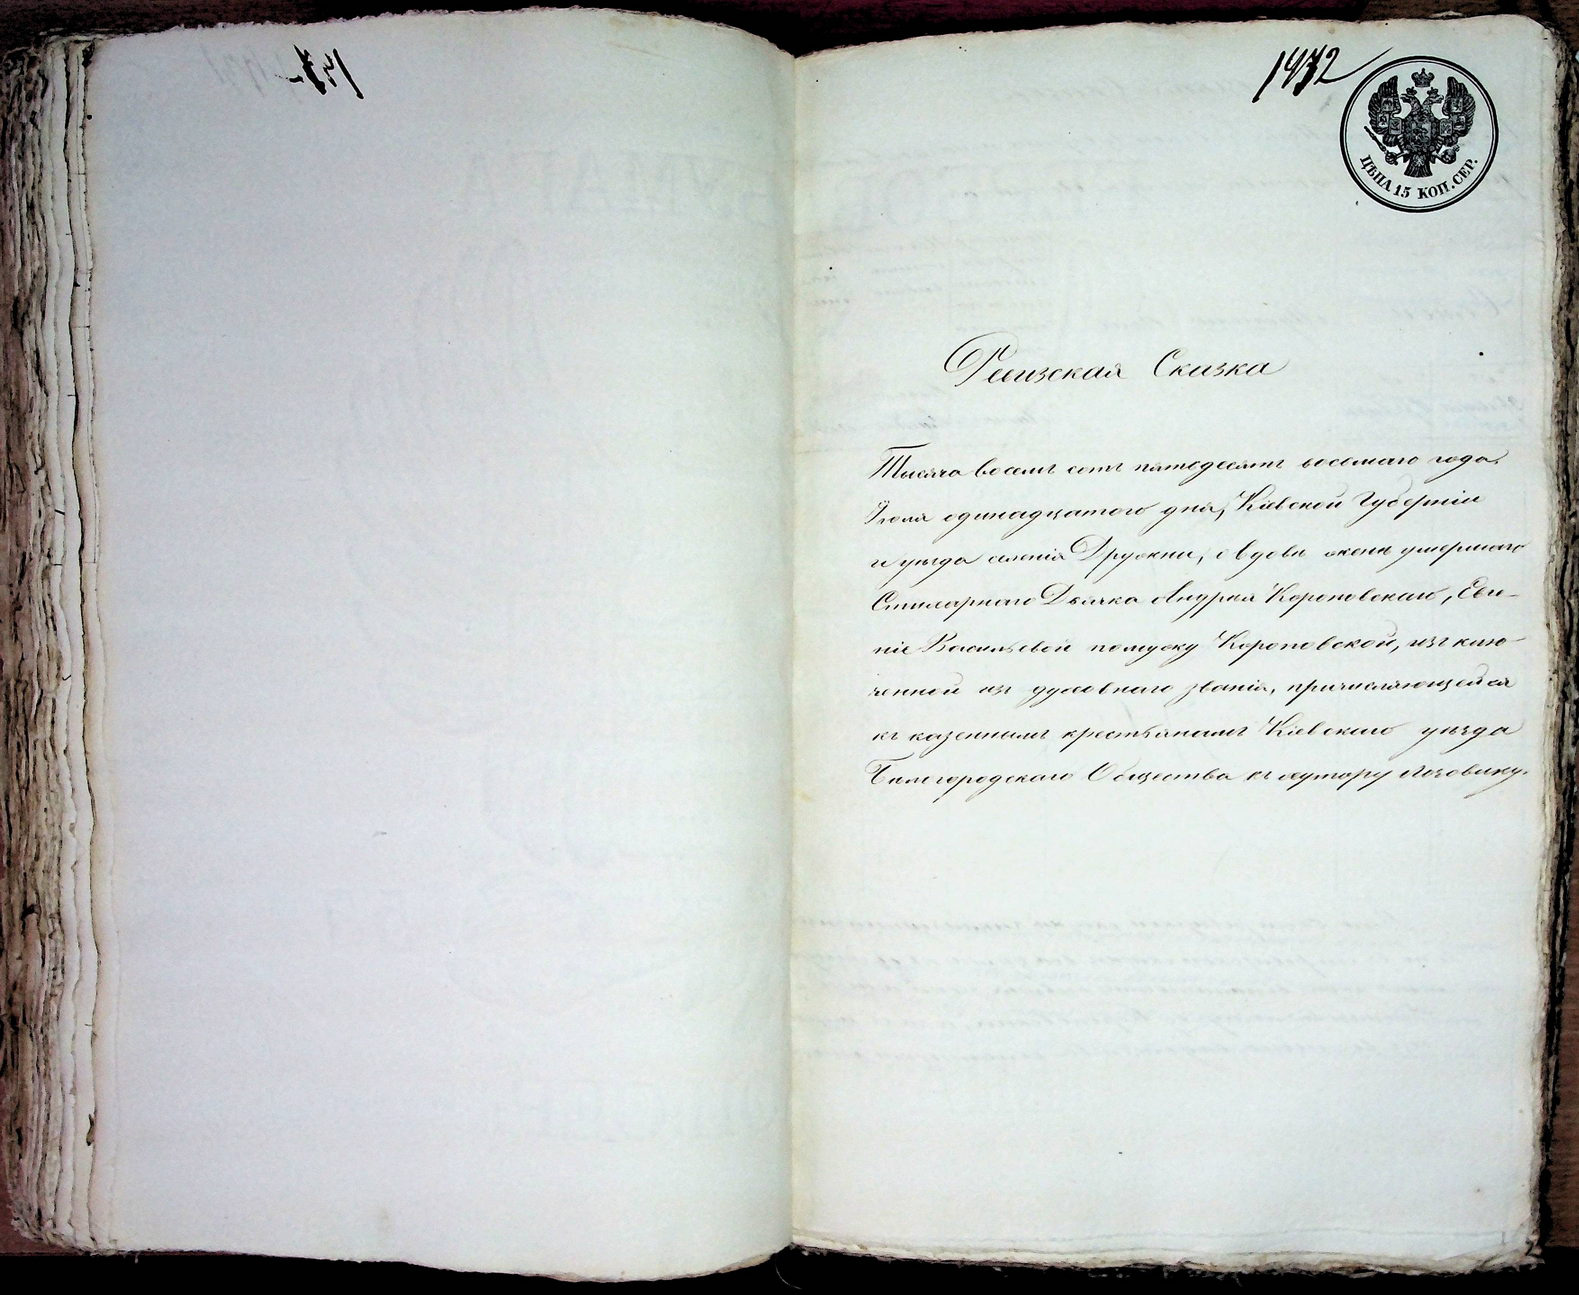 1472
ЦѢНА 15 КОП. СЕР.
Ревизская Сказка
Тысяча восемь сотъ пятьдесятъ восьмаго года
Іюля одинадцатого дня, Кіевской Губерніи
и уѣзда селенія Дружни, о вдовѣ женѣ умершаго
Дьячка Андрея Короповскаго, Евге-
ніе Васильевой по мужу Короповской, исключ-
ченной из духовнаго званія, причисляющейся
къ казеннымъ крестьянамъ Кіевскаго уѣзда
Белгородскаго Общества къ хутору